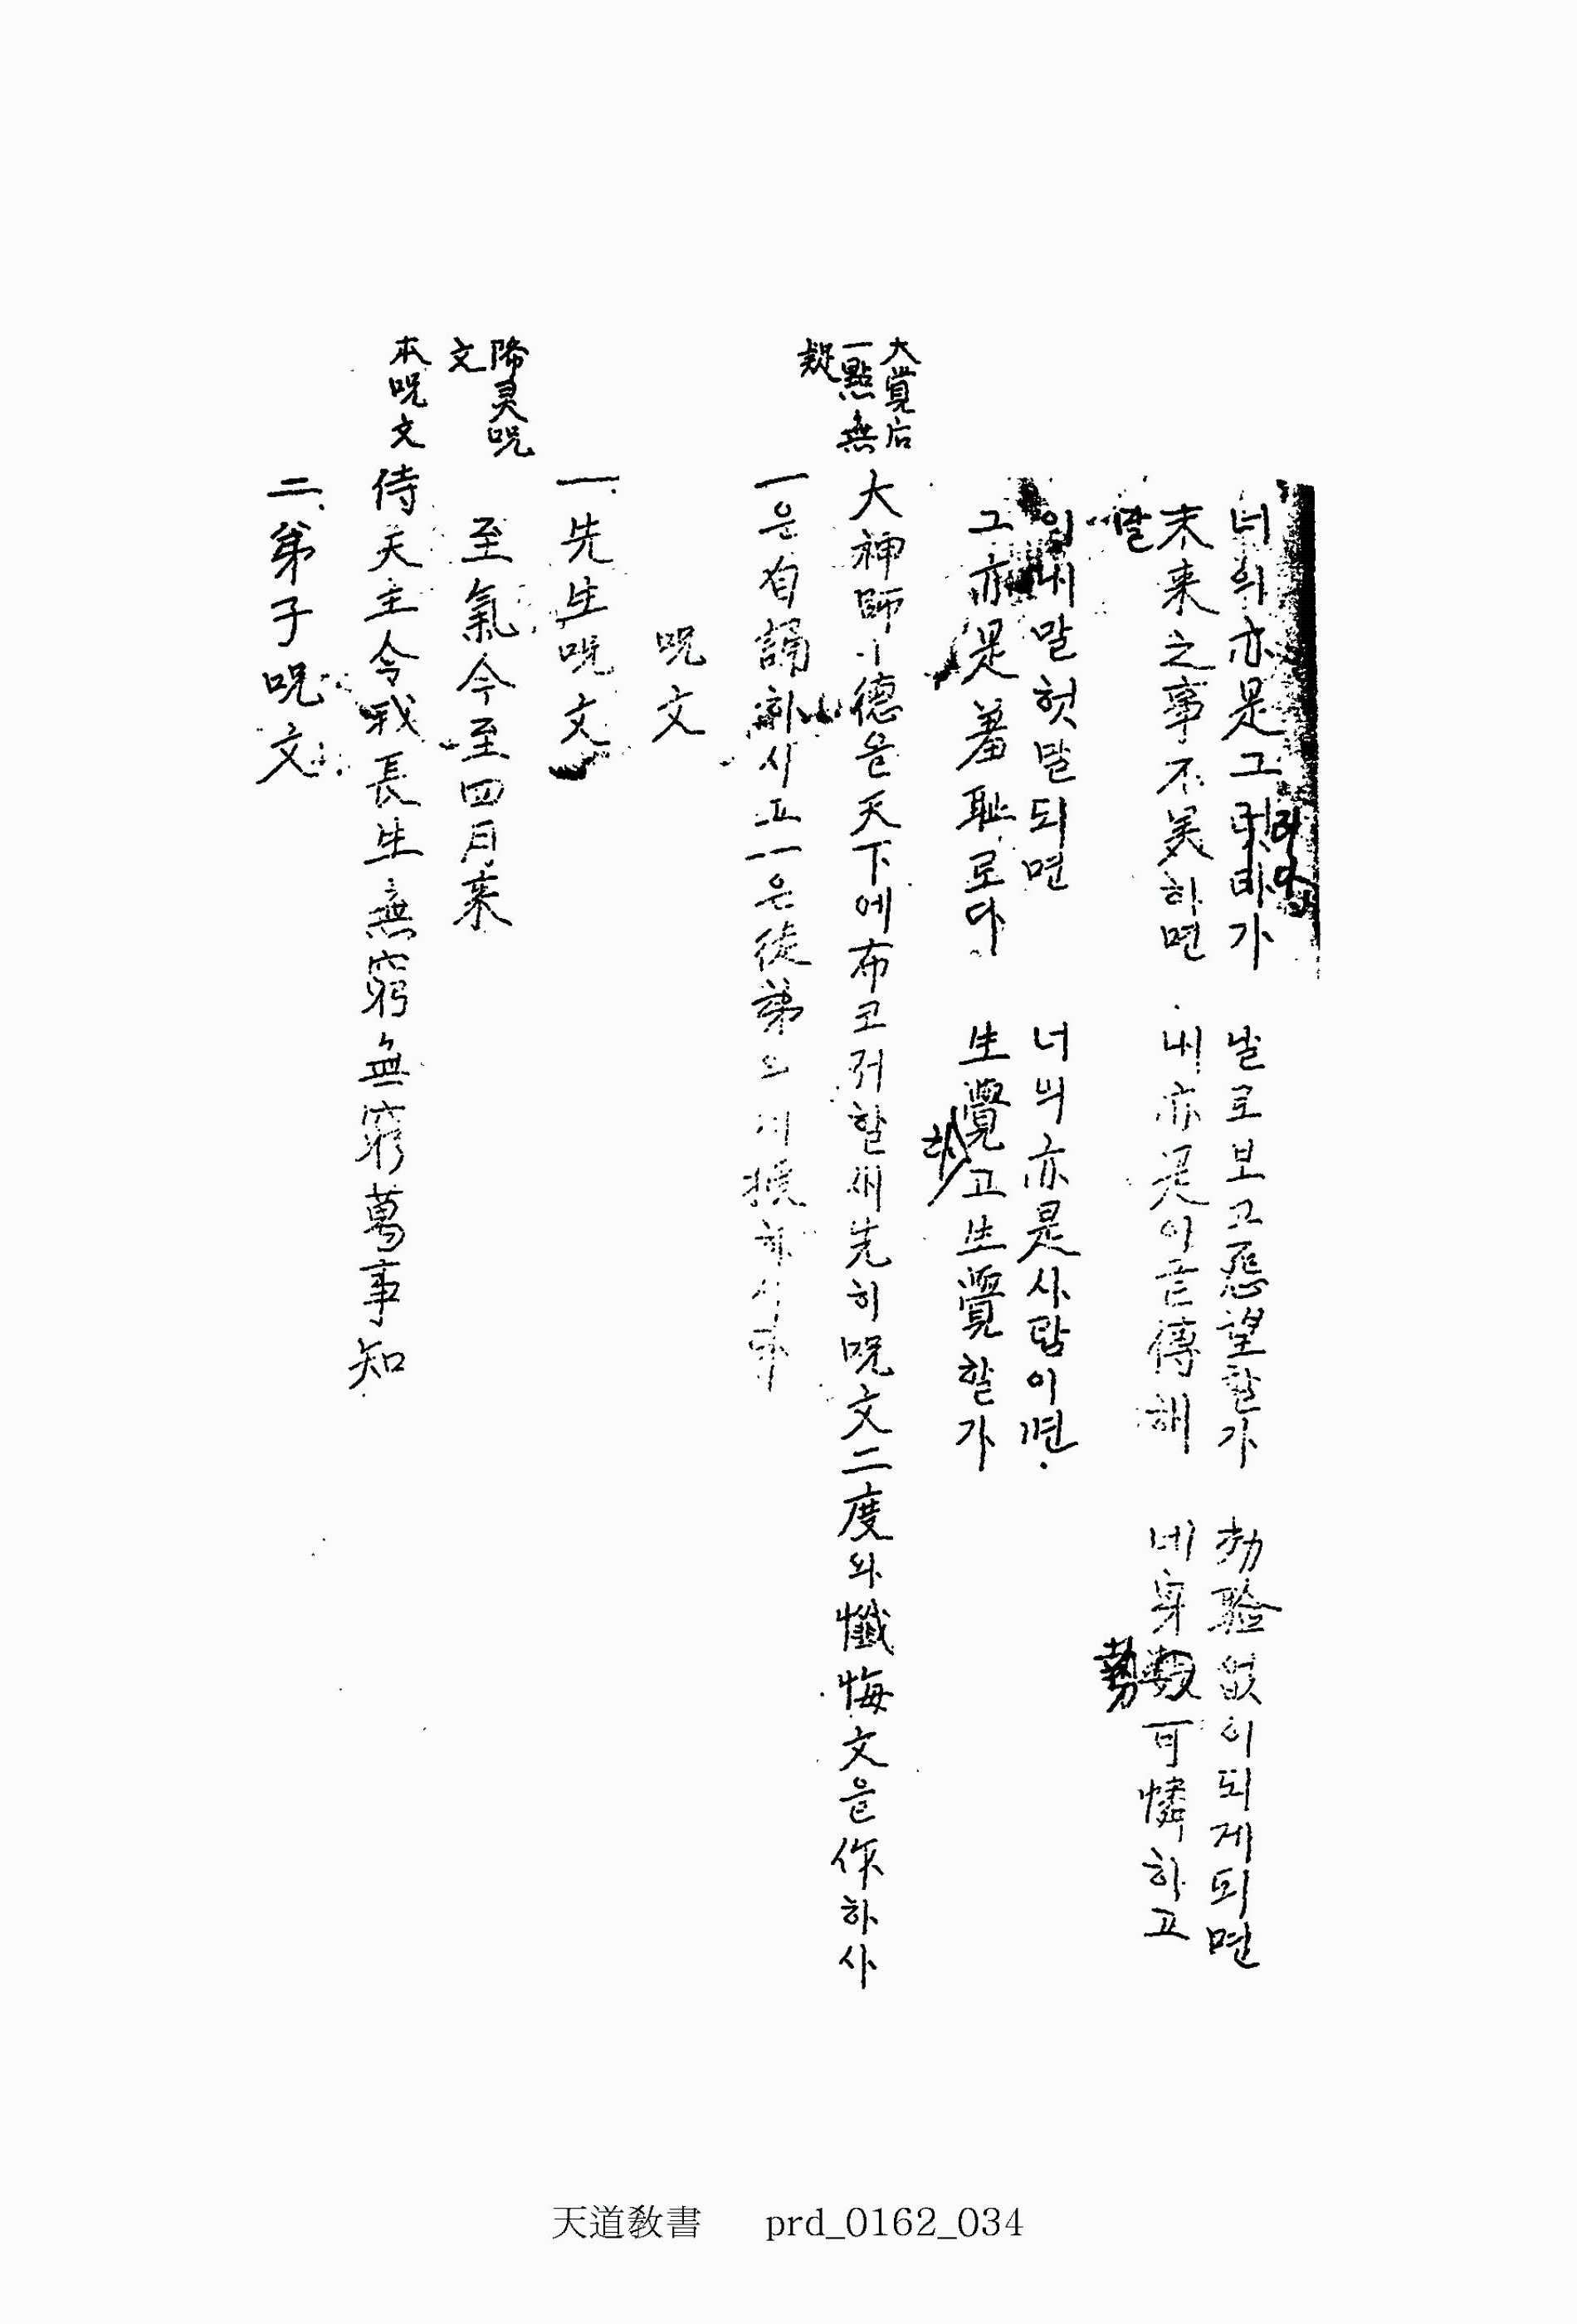 너의亦是그 바가 날로보고怨望할가 効驗없이되게되면
末来之事不美하면 내亦是이글傳해 네身数可憐하고
勢
말
내말헛말되면 너의亦是사람이면
그亦是羞恥로다 生覺고生覺할가
하
大覺后
一點無
疑
大神師ㅣ德을天下에布코저할새先히呪文二度와懺悔文을作하사
一은自誦하시고一은徒弟의게授하시다
呪文
一、先生呪文
降灵呪
文
至氣今至四月来
本呪文
侍天主令我長生無窮無窮萬事知
二、弟子呪文
天道教書 prd_0162_034